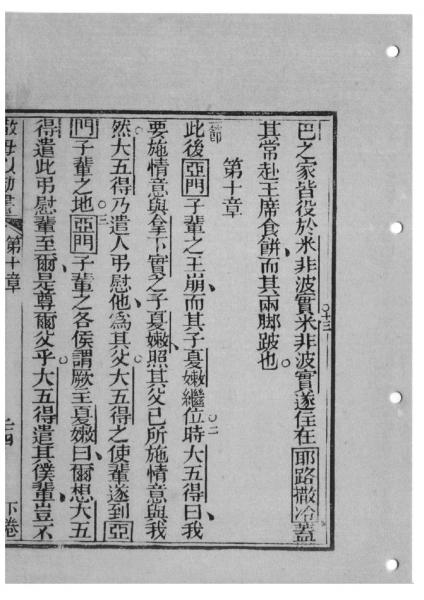 巴之家皆役於米非波實○十三米非波實遂住在耶路撒冷蓋
其常赴王席食餅而其兩脚跛也
第十章
節此後亞門子輩之王崩而其子夏嫩繼位○二時大五得曰我
要施情意與拿下實之子夏嫩照其父已所施情意與我
然大五得乃遣人弔慰他爲其父大五得之使輩遂到亞
門子輩之地○三亞門子輩之各侯謂厥主夏嫩曰爾想大五
得遣此弔慰輩至爾是尊爾父乎大五得遣其僕輩豈不
第十章 二四 下卷